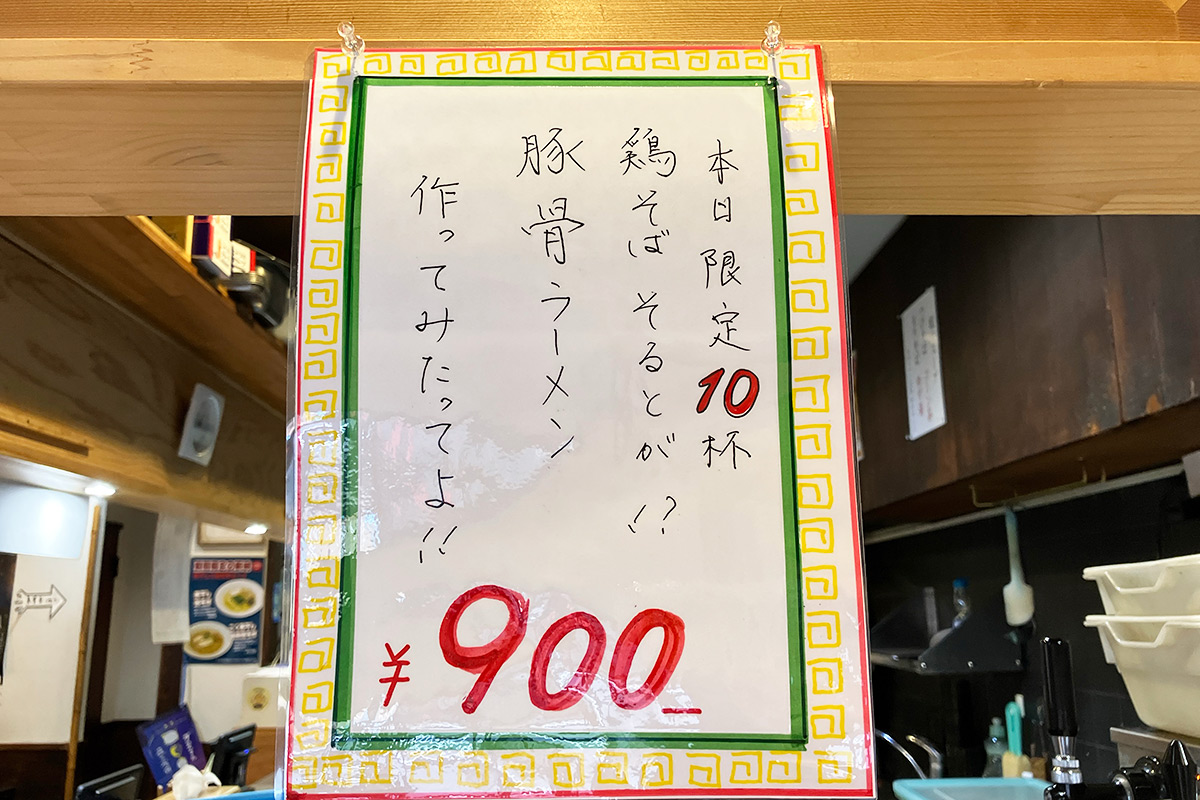 本日限定10杯
鶏そば そるとが!?
豚骨ラーメン
作ってみたってよ!!
¥900_